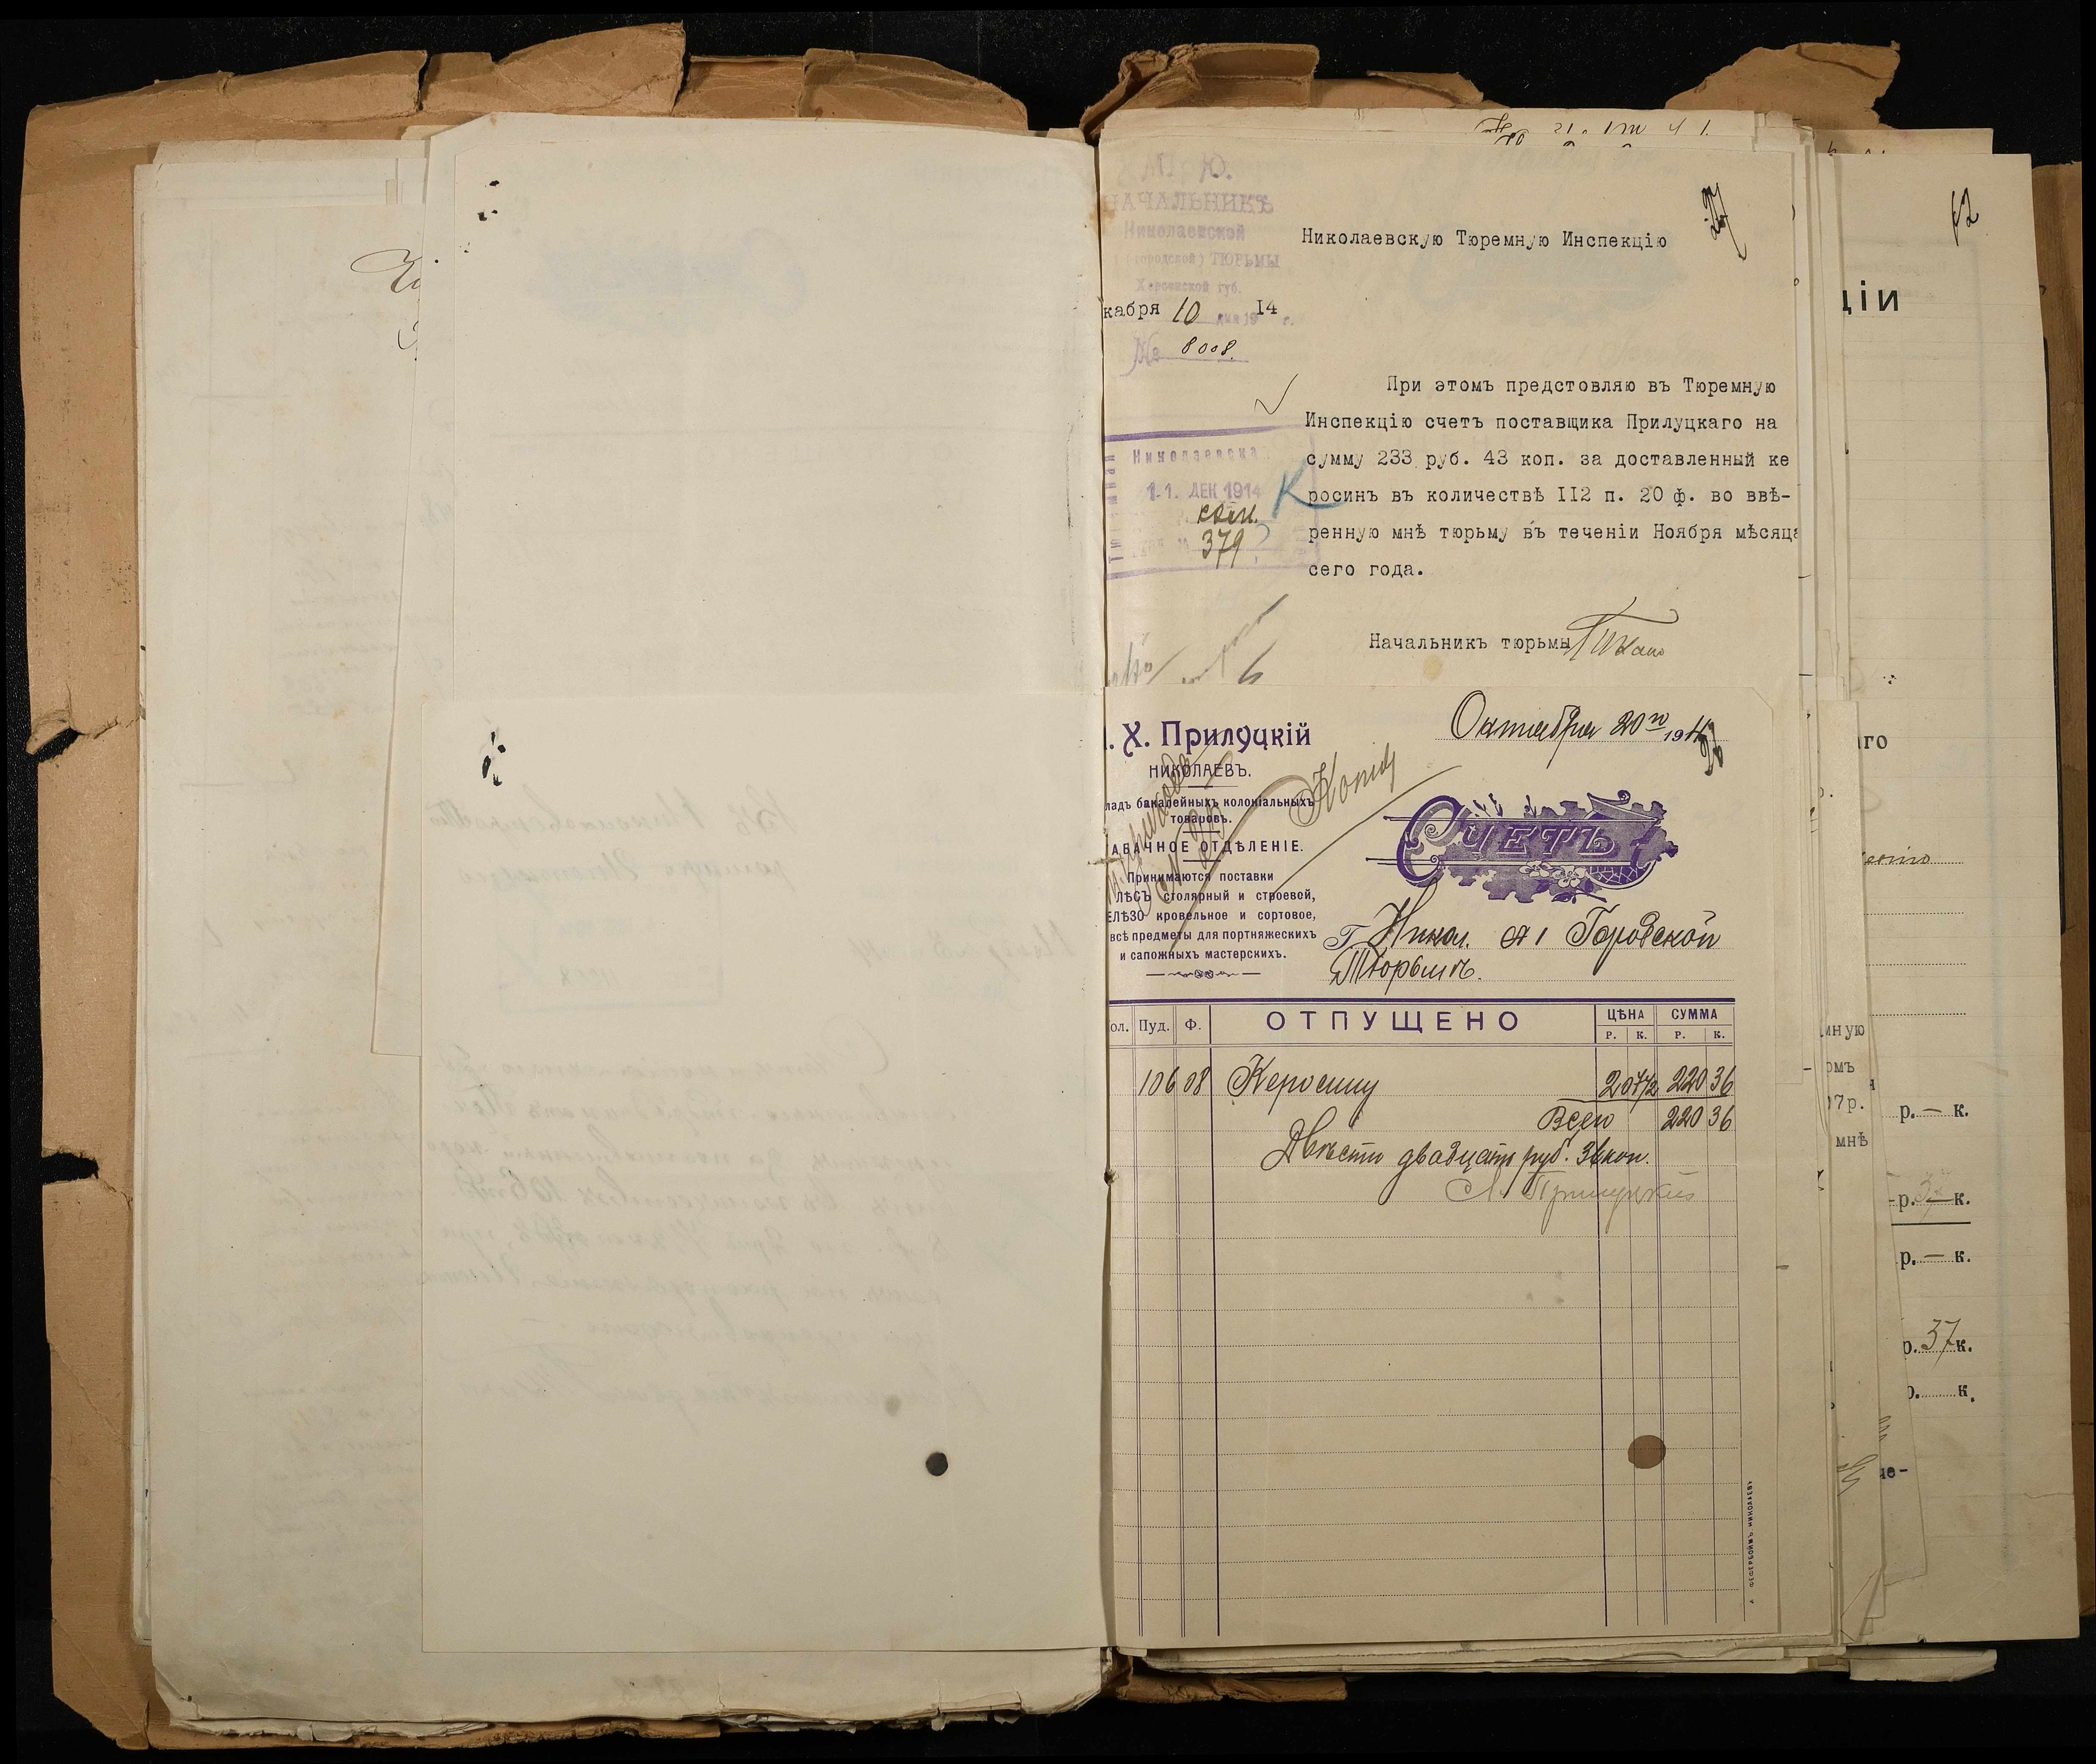 М. Ю.
НАЧАЛЬНИКЪ
Николаевской
(городской) ТЮРЬМЫ
Херсонской губ.
кабря 10 дня 19 14 г.
№ 8008.
Николаевскую Тюремную Инспекцію
27
При этомъ предстовляю въ Тюремную
Инспекцію счетъ поставщика Прилуцкаго на
сумму 233 руб. 43 коп. за доставленный ке
росинъ въ количествѣ II2 п. 20 ф. во ввѣ-
ренную мнѣ тюрьму въ теченіи Ноября мѣсяца
сего года.
Николаевска
11. ДЕК 1914
379
К
Начальникъ тюрьмы
. Х. Прилуцкій
НИКОЛАЕВЪ.
ладъ бакалейныхъ колоніальныхъ
товаровъ.
АБАЧНОЕ ОТДѢЛЕНІЕ.
Принимаются поставки
ЛѢСЪ столярный и строевой,
ЕЛѢЗО кровельное и сортовое,
всѣ предметы для портняжескихъ
и сапожныхъ мастерскихъ.
Копія
Октября 20го 1914
СЧЕТЪ
Г. Никол. Городской
Тюрьмѣ.
ол. Пуд. Ф. ОТПУЩЕНО ЦѢНА СУММА
Р. К. Р. К.
106 08 Керосину 2 07 1/2 220 36
Всего 220 36
Двѣсти двадцать руб. 36 коп.
Прилуцкій
62
ціи
аго
мную
омъ
07р.
мнѣ
р. — к.
р. — к.
р. — к.
р. 37 к.
р. к.